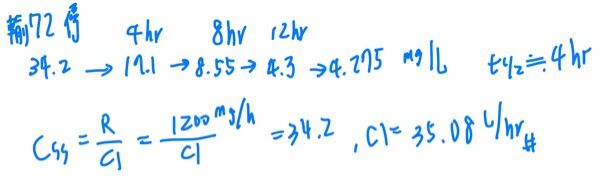 輸入停 4hr 8hr 12hr
34.2 → 17.1 → 8.55 → 4.3 → 4.275 mg/L t1/2≒4hr
Css = R/Cl = 1200mg/h / Cl = 34.2 , Cl = 35.08 L/hr #